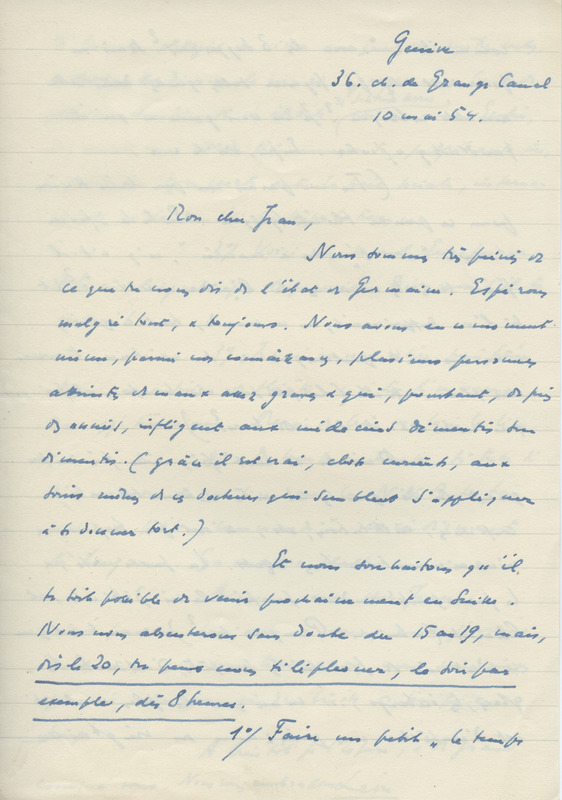 Genève
36. ch. de Grange Canal
10 mai 54.
Mon cher Jean,
Nous sommes très peinés de
ce que tu nous dis de l'état de Germaine. Espérons
malgré tout, & toujours. Nous avons en ce moment
même, parmi nos connaissances, plusieurs personnes
atteintes de maux assez graves & qui, pourtant, depuis
des années, infligent aux médecins démentis sur
démentis. (grâce il est vrai, chose curieuse, aux
soins mêmes de ces docteurs qui semblent s'appliquer
à se donner tort.)
Et nous souhaitons qu'il
te soit possible de venir prochainement en Suisse.
Nous nous absenterons sans doute du 15 au 19, mais,
dès le 20, tu peux nous téléphoner, le soir par
exemple, dès 8 heures.
1°/ Faire un petit „ le temps